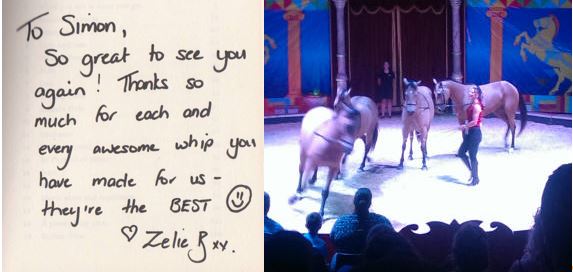 To Simon,
So great to see you
again! Thanks so
much for each and
every awesome whip you
have made for us -
they're the BEST ☺
♡ Zelie B xx.